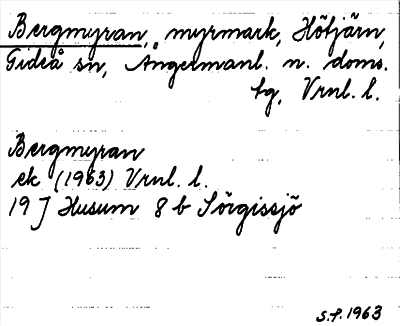 Bergmyran, myrmark, Hötjärn,
Gideå sn, Ångermanl. n. doms.
hg, Vrnl. l.
Bergmyran
ek (1963) Vrnl. l.
19 J Husum 8 b Sörgissjö
S.F. 1963